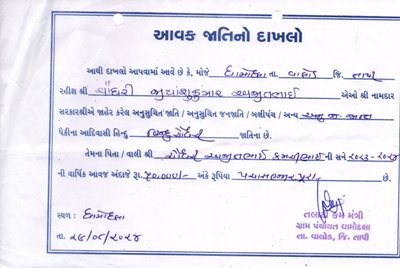 આવક જાતિનો દાખલો
આથી દાખલો આપવામાં આવે છે કે, મોજે ધામોદલા તા. વાલોડ જિ. તાપી
રહીશ શ્રી ચૌધરી અજીતભાઈ એઓ શ્રી નામદાર
સરકારશ્રીએ જાહેર કરેલ અનુસુચિત જાતિ / અનુસુચિત જનજાતિ / બક્ષીપંચ / અન્ય
પૈકીના આદિવાસી હિન્દુ હિન્દુ ચૌધરી જાતિના છે.
તેમના પિતા / વાલી શ્રી ચૌધરી અજીતભાઈ ની સને ૨૦૨૩-૨૦૨૪
ની વાર્ષિક આવક અંદાજે રૂા. ૫૦,૦૦૦/- અંકે રૂપિયા પચાસ હજાર પુરા છે.
સ્થળ : ધામોદલા
તા. ૨૯/૦૮/૨૦૨૪
તલાટી કમ મંત્રી
ગ્રામ પંચાયત ધામોદલા
તા. વાલોડ, જિ. તાપી